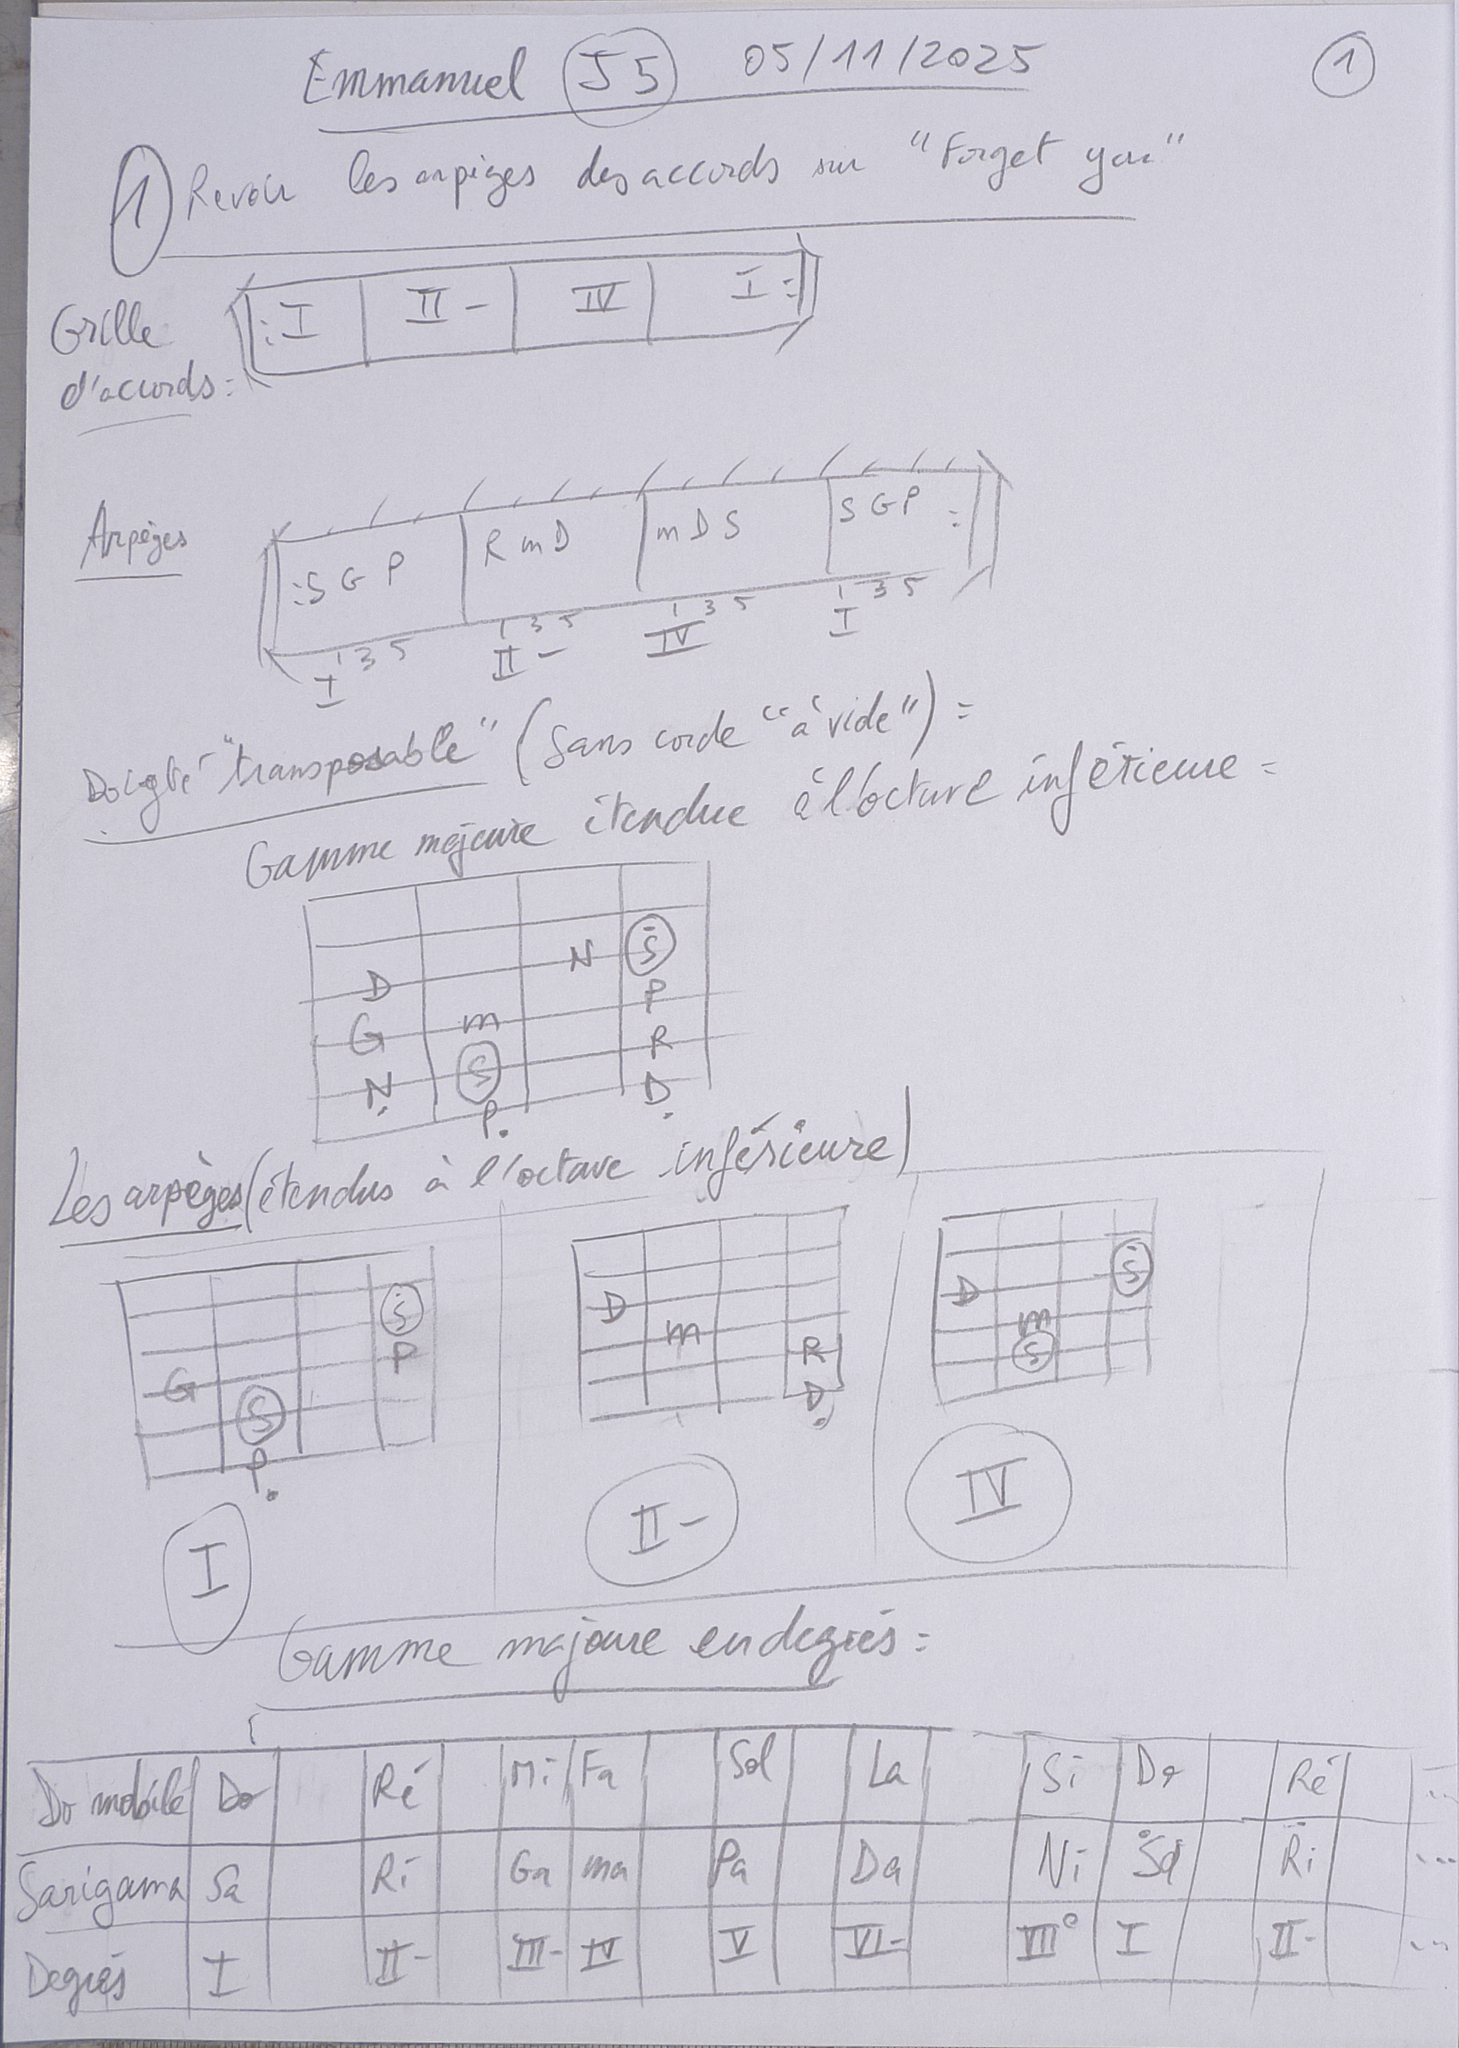 Emmanuel J5 05/11/2025
1
1 Revoir les arpèges des accords sur "Forget you"
Grille d'accords :
: I | II- | IV | I :
Arpèges
: S G P | R m D | m D S | S G P :
1 3 5 | 1 3 5 | 1 3 5 | 1 3 5
I | II- | IV | I
Doigté "transposable" (sans corde "à vide") =
Gamme majeure étendue à l'octave inférieure =
N Ṡ
D P
G m R
Ṇ S Ḍ
P.
Les arpèges (étendus à l'octave inférieure)
Ṡ
P
G
S
P.
I
D
m
R
Ḍ
II-
Ṡ
D
m
S
IV
Gamme majeure en degrés :
Do mobile | Do | Ré | Mi | Fa | Sol | La | Si | Do | Ré | ...
Sarigama | Sa | Ri | Ga | ma | Pa | Da | Ni | Ṡa | Ṙi | ...
Degrés | I | II- | III- | IV | V | VI- | VII° | I | II- | ...